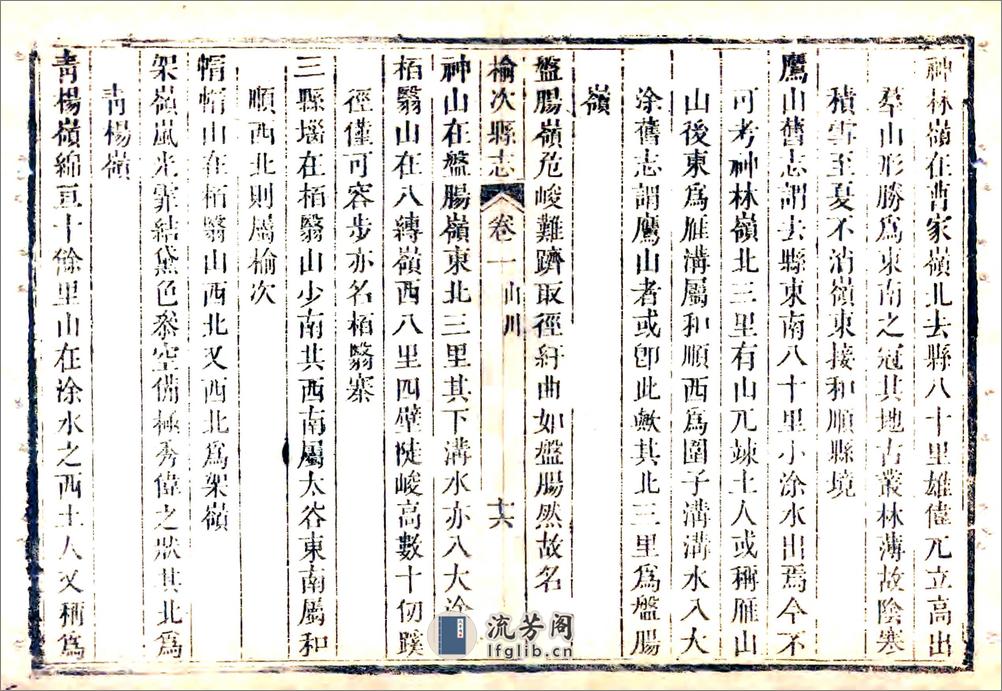 神林嶺在曹家嶺北去縣八十里雄偉兀立高出
羣山形勝爲東南之冠其地古叢林薄故陰寒
積雪至夏不消嶺東接和順縣境
鷹山舊志謂去縣東南八十里小涂水出焉今不
可考神林嶺北三里有山兀竦土人或稱雁山
山後東爲雁溝屬和順西爲圍子溝溝水入大
涂舊志謂鷹山者或卽此歟其北三里爲盤腸
嶺
盤腸嶺危峻難躋取徑紆曲如盤腸然故名
榆次縣志 卷一 山川 十六
神山在盤腸嶺東北三里其下溝水亦入大涂
栢翳山在八縛嶺西八里四壁陡峻高數十仞蹊
徑僅可容步亦名栢翳寨
三縣堖在栢翳山少南其西南屬太谷東南屬和
順西北則屬榆次
帽帽山在栢翳山西北又西北爲架嶺
架嶺嵐光霏結黛色叅空備極秀偉之狀其北爲
靑楊嶺
靑楊嶺綿亘十餘里山在涂水之西土人又稱爲
流芳阁
lfglib.cn